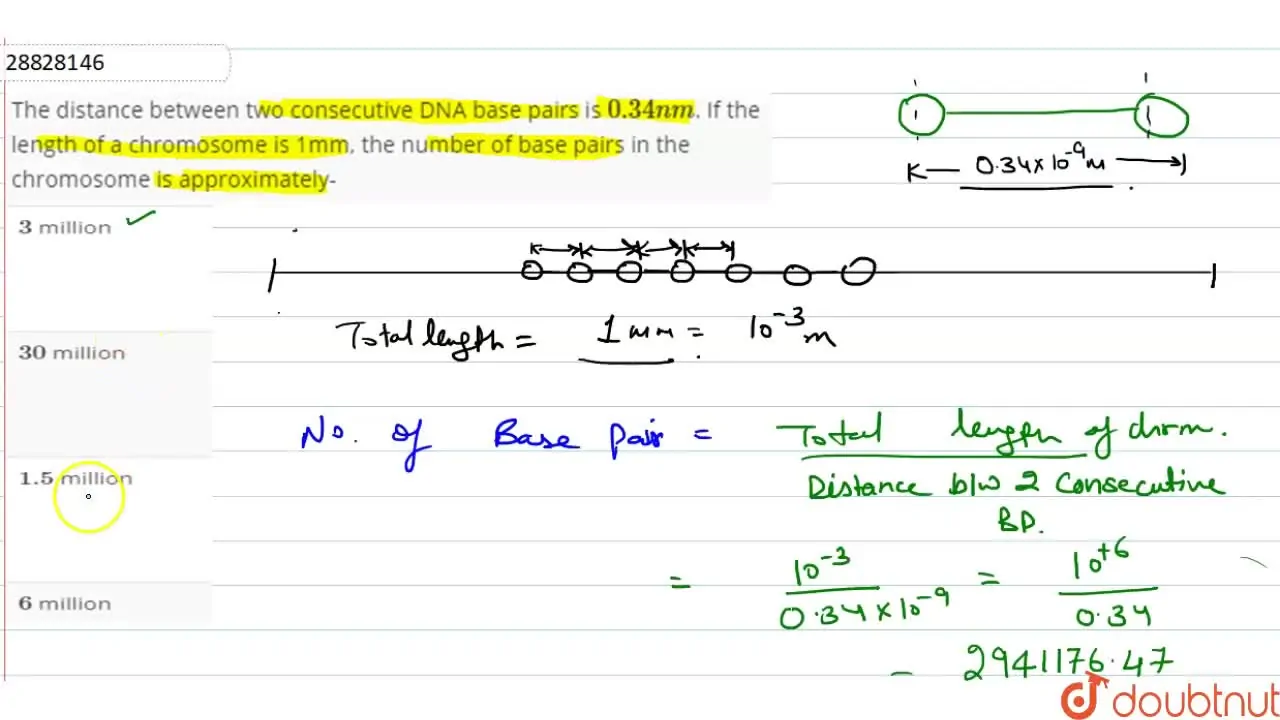 28828146
The distance between two consecutive DNA base pairs is 0.34nm. If the
length of a chromosome is 1mm, the number of base pairs in the
chromosome is approximately-
0.34×10⁻⁹m
3 million
Total length = 1mm = 10⁻³m
30 million
No. of Base Pair = Total length of chrm.
Distance b/w 2 Consecutive
BP.
1.5 million
= 10⁻³ / 0.34×10⁻⁹ = 10⁺⁶ / 0.34
6 million
= 2941176.47
doubtnut